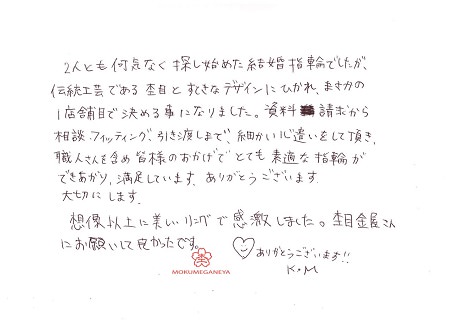 2人とも何気なく探し始めた結婚指輪でしたが、
伝統工芸である杢目とすてきなデザインにひかれ、まさかの
1店舗目で決める事になりました。資料請求から
相談、フィッティング、引き渡しまで、細かい心遣いをして頂き、
職人さんを含め皆様のおかげでとても素適な指輪が
できあがり、満足しています。ありがとうございます。
大切にします。
想像以上に美しいリングで感激しました。杢目金屋さん
にお願いして良かったです。
ありがとうございます!!
K・M
MOKUMEGANEYA